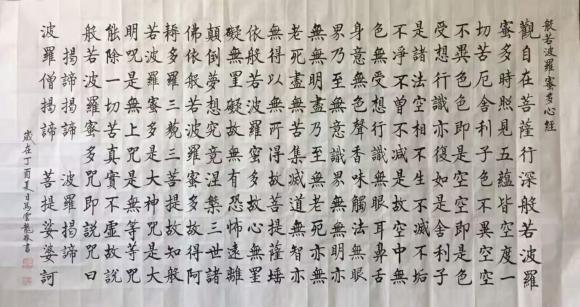 般若波羅蜜多心經
觀自在菩薩行深般若波羅
蜜多時照見五蘊皆空度一
切苦厄舍利子色不異空空
不異色色即是空空即是色
受想行識亦復如是舍利子
是諸法空相不生不滅不垢
不淨不增不減是故空中無
色無受想行識無眼耳鼻舌
身意無色聲香味觸法無眼
界乃至無意識界無無明亦
無無明盡乃至無老死亦無
老死盡無苦集滅道無智亦
無得以無所得故菩提薩埵
依般若波羅蜜多故心無罣
礙無罣礙故無有恐怖遠離
顛倒夢想究竟涅槃三世諸
佛依般若波羅蜜多故得阿
耨多羅三藐三菩提故知般
若波羅蜜多是大神咒是大
明咒是無上咒是無等等咒
能除一切苦真實不虛故說
般若波羅蜜多咒即說咒曰
揭諦揭諦 波羅揭諦
波羅僧揭諦 菩提娑婆訶
歲在丁酉夏日馬雲龍書